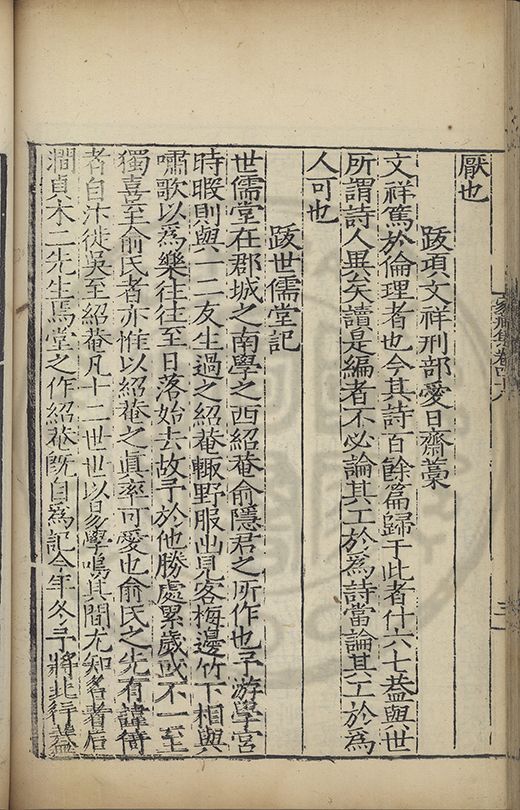 厭也
跋項文祥刑部愛日齋藁
文祥篤於倫理者也今其詩百餘篇歸于此者什六七葢與世
所謂詩人異矣讀是編者不必論其工於爲詩當論其工於爲
人可也
跋世儒堂記
世儒堂在郡城之南學之西紹菴俞隱君之所作也予游學宮
時暇則與一二友生過之紹菴輙野服出見客梅邊竹下相與
嘯歌以爲樂往往至日落始去故予於他勝處累歲或不一至
獨喜至俞氏者亦惟以紹菴之眞率可愛也俞氏之先有諱倚
者自汴徙吳至紹菴凡十二世世以易學鳴其間尤知名者石
澗貞木二先生焉堂之作紹菴旣自爲記今年冬予將北行葢
家藏集卷四十八